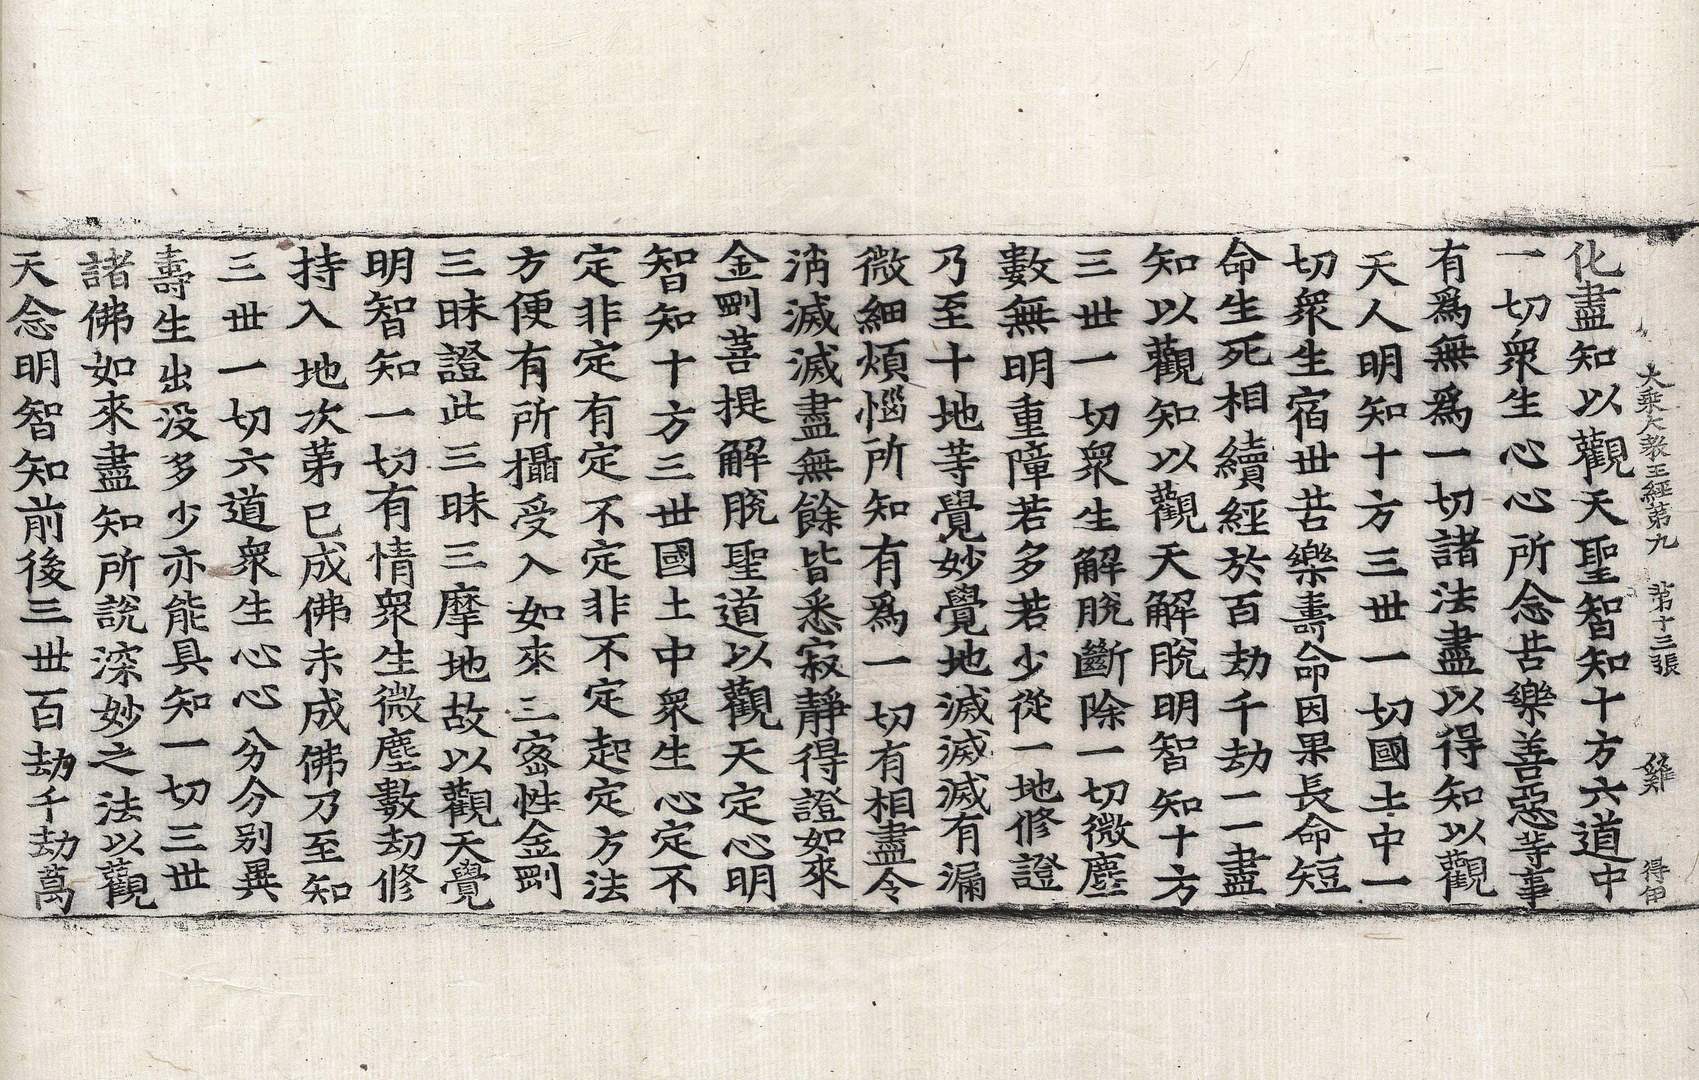 大乘大教王經第九 第十三張 雞 得伊
化盡知以觀天聖智知十方六道中
一切衆生心心所念苦樂善惡等事
有爲無爲一切諸法盡以得知以觀
天人明知十方三世一切國土中一
切衆生宿世苦樂壽命因果長命短
命生死相續經於百劫千劫一一盡
知以觀知以觀天解脫明智知十方
三世一切衆生解脫斷除一切微塵
數無明重障若多若少從一地修證
乃至十地等覺妙覺地滅滅滅有漏
微細煩惱所知有爲一切有相盡令
消滅滅盡無餘皆悉寂靜得證如來
金剛菩提解脫聖道以觀天定心明
智知十方三世國土中衆生心定不
定非定有定不定非不定起定方法
方便有所攝受入如來三密性金剛
三昧證此三昧三摩地故以觀天覺
明智知一切有情衆生微塵數劫修
持入地次第已成佛未成佛乃至知
三世一切六道衆生心心分分別異
壽生出没多少亦能具知一切三世
諸佛如來盡知所說深妙之法以觀
天念明智知前後三世百劫千劫萬